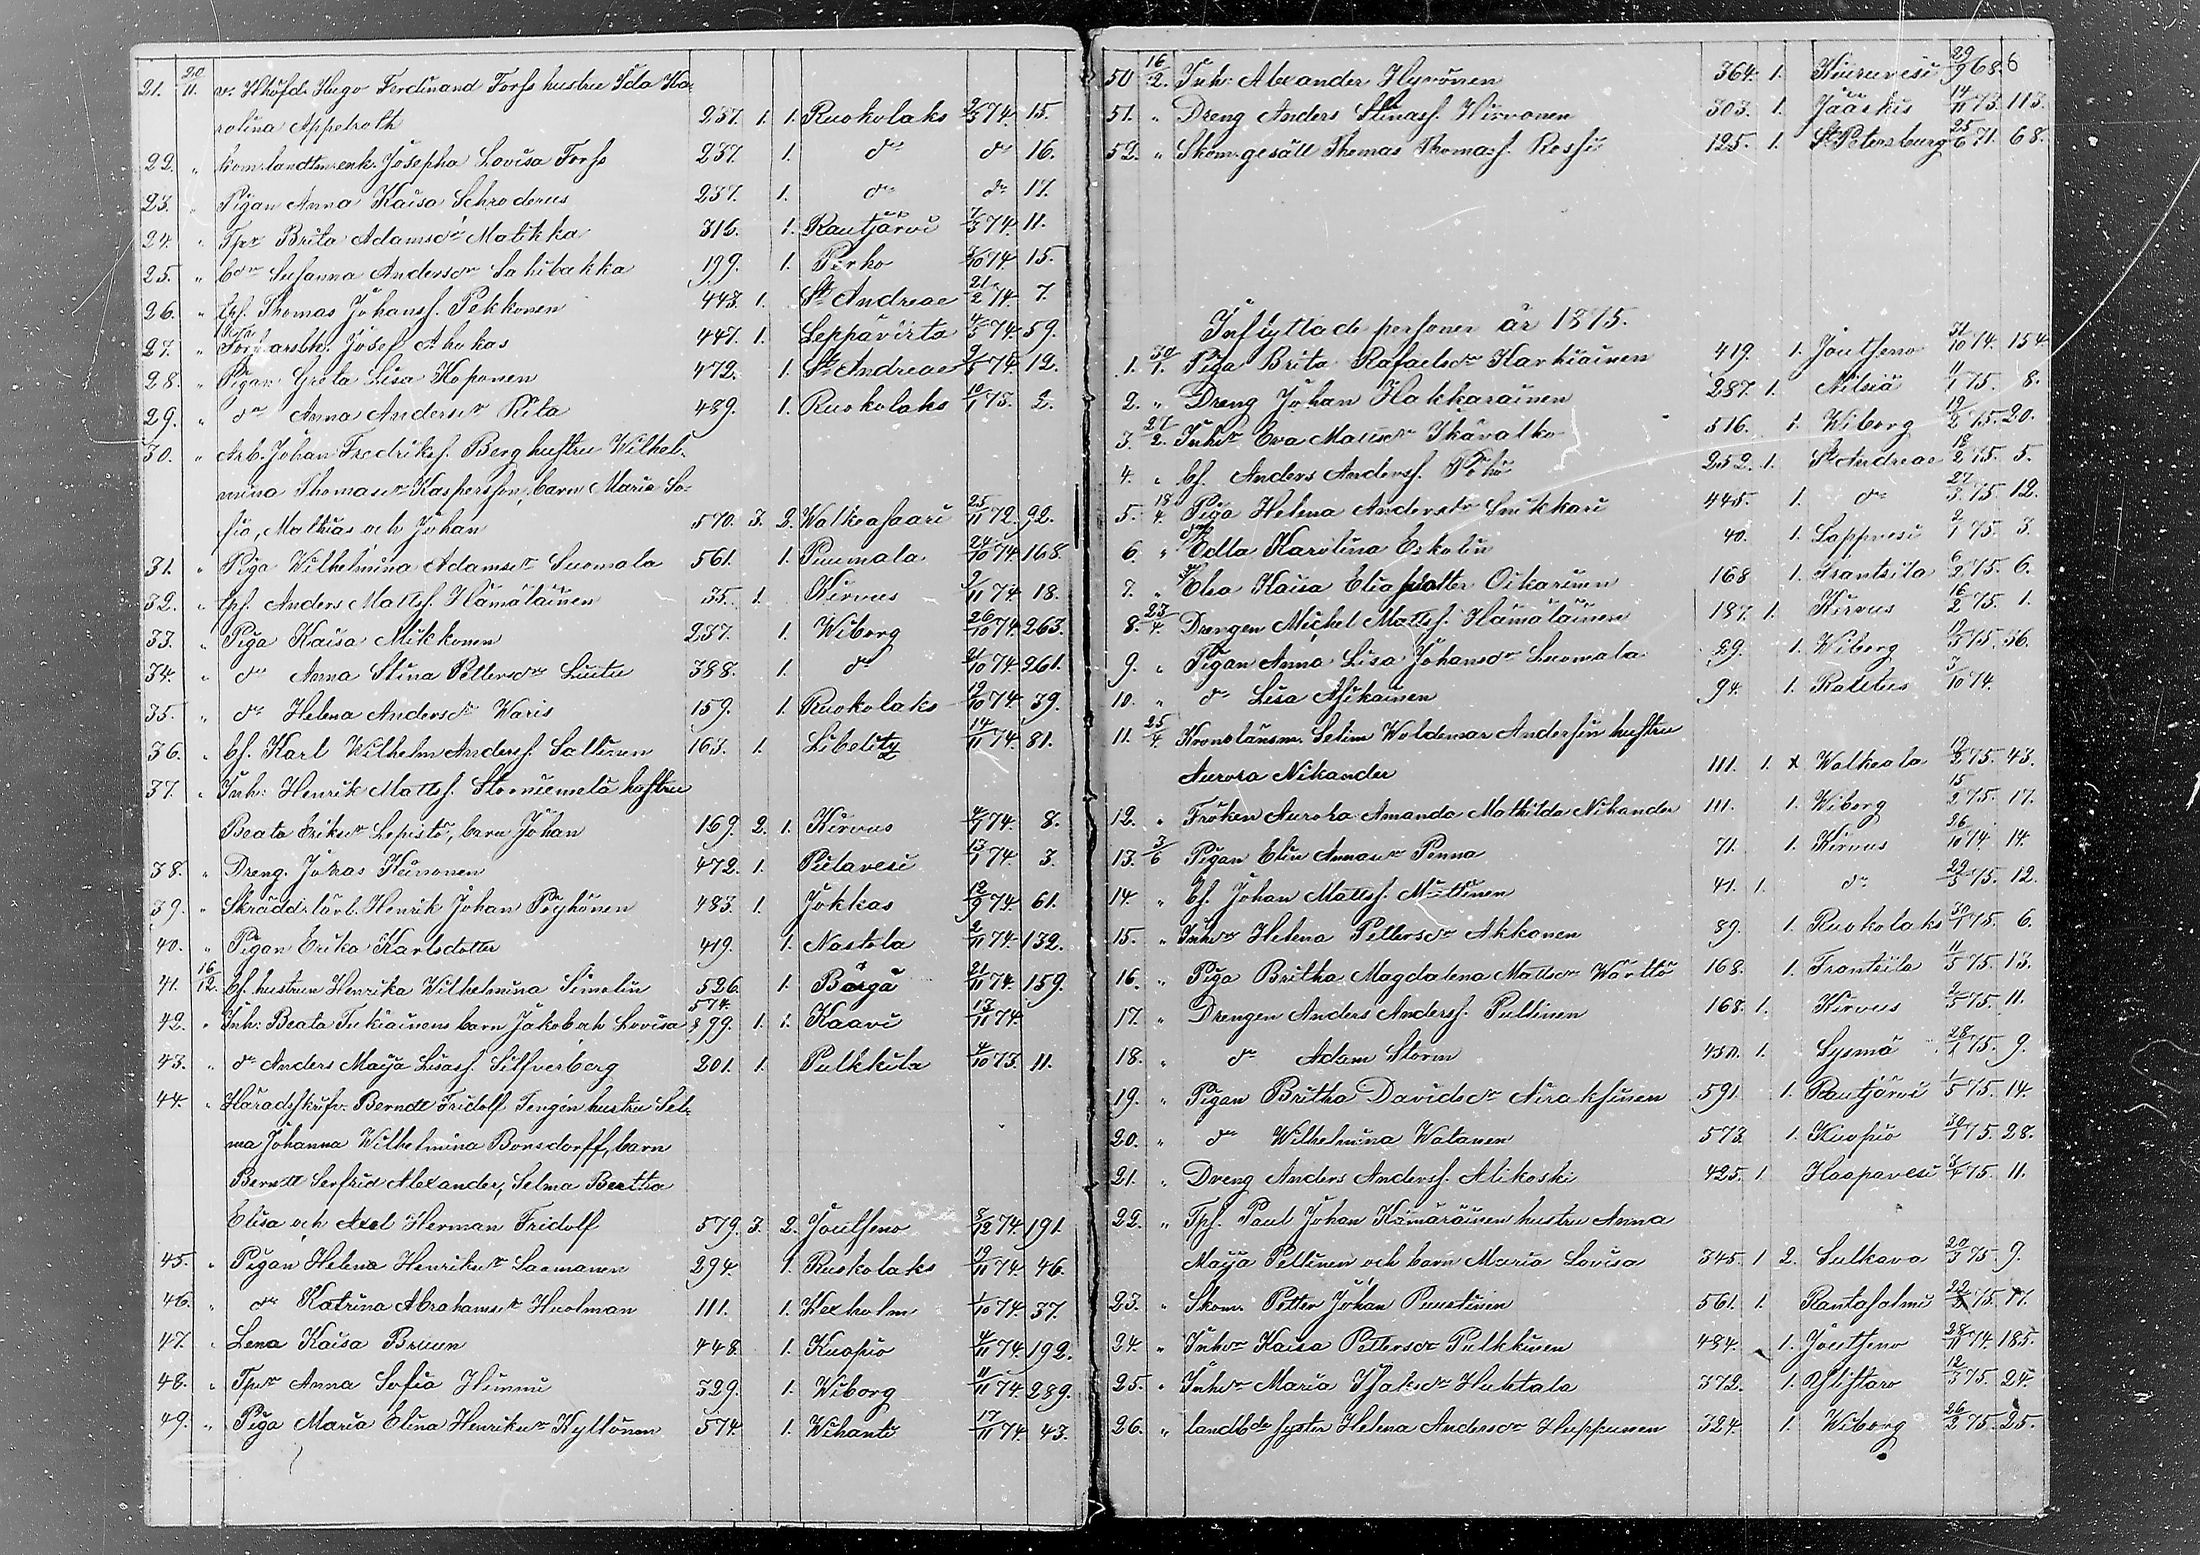 21. 20/11. v. Khöfd. Hugo Ferdinand Forss hustru Ida Ka-
rolina Appelroth 237. 1. 1. Ruokolaks 2/3 74. 15.
22. " kom. landtm. enk. Josepha Lovisa Forss 237. 1. do do 16.
23. " Pigan Anna Kaisa Schroderus 237. 1. do do 17.
24. " Tpr Brita Adamsdr Matikka 316. 1. Rautjärvi 1/3 74. 11.
25. " bdr Susanna Andersdr Sahibakka 199. 1. Perho 3/10 74. 15.
26. " tpf. Thomas Johansf. Pekkonen 443. 1. St Andreae 21/2 74. 7.
27. " Josef Ahokas 447. 1. Leppävirta 4/5 74. 59.
28. " Pigan Greta Lisa Koponen 472. 1. St Andreae 9/5 74. 12.
29. " do Anna Andersdr Rita 489. 1. Ruokolaks 10/1 75. 2.
30. " Arb. Johan Fredriksf. Berg hustru Wilhel-
mina Thomasdr Kaspersson, barn Maria So-
fia, Mathias och Johan 570. 3. 2. Walkeasaari 25/11 72. 92.
31. " Piga Wilhelmina Adamsdr Suomala 561. 1. Puumala 24/10 74. 168.
32. " tpf. Anders Mattsf. Hämäläinen 35. 1. Kirvus 9/11 74. 18.
33. " Piga Kaisa Mikkonen 237. 1. Wiborg 26/10 74. 263.
34. " do Anna Stina Pettersdr Luutu 388. 1. do 21/10 74. 261.
35. " do Helena Andersdr Waris 159. 1. Ruokolaks 19/10 74. 39.
36. " bf. Karl Wilhelm Andersf. Sallinen 163. 1. Libelitz 14/11 74. 81.
37. " Inh: Henrik Mattsf. Storniemelä hustru
Beata Eriksdr Lepistö, barn Johan 169. 2. 1. Kirvus 4/7 74. 8.
38. " Dreng. Johas Keinonen 472. 1. Pielavesi 13/1 74. 3.
39. " Skrädd. lärl. Henrik Johan Pöyhönen 483. 1. Jokkas 12/9 74. 61.
40. " Pigan Erika Karlsdotter 419. 1. Nastola 2/11 74. 132.
41. 16/12. bf. hustrun Henrika Wilhelmina Simolin 526. 1. Borgå 21/11 74. 159.
574.
42. " Inh: Beata Tukiainens barn Jakob och Lovisa 899. 1. 1. Kaavi 13/11 74.
43. " do Anders Maija Lisasf. Silfverberg 201. 1. Pulkkila 4/10 73. 11.
44. " Häradsskrifv. Berndt Fridolf Tengén hustru Sel-
ma Johanna Wilhelmina Bonsdorff, barn
Berndt Serfrid Alexander, Selma Bertha
Elisa och Axel Herman Fridolf 579. 3. 2. Joutseno 8/12 74. 191.
45. " Pigan Helena Henriksdr Saamanen 294. 1. Ruokolaks 19/11 74. 46.
46. " do Katrina Abrahamsdr Huolman 111. 1. Kexholm 1/10 74. 37.
47. " Lena Kaisa Bruun 448. 1. Kuopio 4/11 74. 192.
48. " Tpdr Anna Sofia Himmi 329. 1. Wiborg 11/11 74. 289.
49. " Piga Maria Elina Henriksdr Kyllönen 574. 1. Wihanti 17/11 74. 43.
50 16/2. Inh: Alexander Hyvönen 364. 1. Kiuruvesi 29/9 68. 6
51. " Dreng Anders Stinasf. Hirvonen 303. 1. Jääskis 14/11 73. 113.
52. " Skom. gesäll Thomas Thomasf. Rossi 125. 1. St Petersburg 25/6 71. 68.
Inflyttade personer år 1875.
1. 30/1. Piga Brita Rafaelsdr Karkiainen 419. 1. Joutseno 31/10 74. 154.
2. " Dreng Johan Hakkarainen 287. 1. Nilsiä 11/1 75. 8.
3. 21/2. Inhdr Eva Mattsdr Ikävalko 516. 1. Wiborg 19/2 75. 20.
4. " bf. Anders Andersf. Pöhö 252. 1. St Andreae 18/2 75. 5.
5. 18/4. Piga Helena Andersdr Sinkkari 445. 1. do 27/3 75. 12.
6. " Edla Karolina Eskolin 40. 1. Lappvesi 2/1 75. 3.
7. " Elsa Kaisa Eliasdotter Oikarinen 168 1. Frantsila 6/2 75. 6.
8. 23/4. Drengen Michel Mattsf. Hämäläinen 187. 1. Kirvus 16/2 75. 1.
9. " Pigan Anna Lisa Johansdr Suomala 29. 1. Wiborg 19/3 75. 56.
10. " do Lisa Asikainen 94. 1. Walkeala 3/10 74.
11. 25/4. Kronolänsm. Selim Woldemar Andersin hustru
Aurora Nikander 111. 1. x Walkeala 19/2 75. 43.
12. " Fröken Aurora Amanda Mathilda Nikander 111. 1. Wiborg 15/2 75. 17.
13. 3/6 Pigan Elin Annasdr Penna 71. 1. Kirvus 26/10 74. 14.
14. " bf. Johan Mattsf. Mittinen 41. 1. do 22/5 75. 12.
15. " Inhdr Helena Pettersdr Akkanen 89. 1. Ruokolaks 30/1 75. 6.
16. " Piga Britha Magdalena Mattsdr Wärttö 168. 1. Frantsila 11/5 75. 13.
17. " Drengen Anders Andersf. Pullinen 168. 1. Kirvus 2/5 75. 11.
18. " do Adam Storm 450. 1. Sysmä 28/1 75. 9.
19. " Pigan Britha Davidsdr Niraksinen 591. 1. Rautjärvi 1/5 75. 14.
20. " do Wilhelmina Watanen 573. 1. Kuopio 30/1 75. 28.
21. " Dreng Anders Andersf. Alikoski 425. 1. Haapavesi 3/4 75. 11.
22. " Tpf. Paul Johan Kämäräinen hustru Anna
Maija Pellinen och barn Maria Lovisa 345. 1 2. Sulkava 20/3 75. 9.
23. " Skom. Petter Johan Puustinen 561. 1. Rantasalmi 22/3 75. 17.
24. " Inhdr Kaisa Pettersdr Pulkkinen 484. 1. Joutseno 28/11 74. 185.
25. " Inhdr Maria Isaksdr Huhtala 372. 1. Ylistaro 12/3 75. 24.
26. " landbde syster Helena Andersdr Huppunen 324. 1. Wiborg 26/2 75. 25.